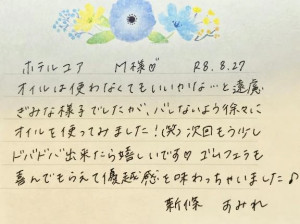 ホテルコア M様♡ R8.8.27
オイルは使わなくてもいいかな…と遠慮
ぎみな様子でしたが、バレないよう徐々に
オイルを使ってみました!(笑)次回もう少し
ドバドバ出来たら嬉しいです♡ゴムフェラも
喜んでもらえて優越感を味わっちゃいました♪
新條 すみれ